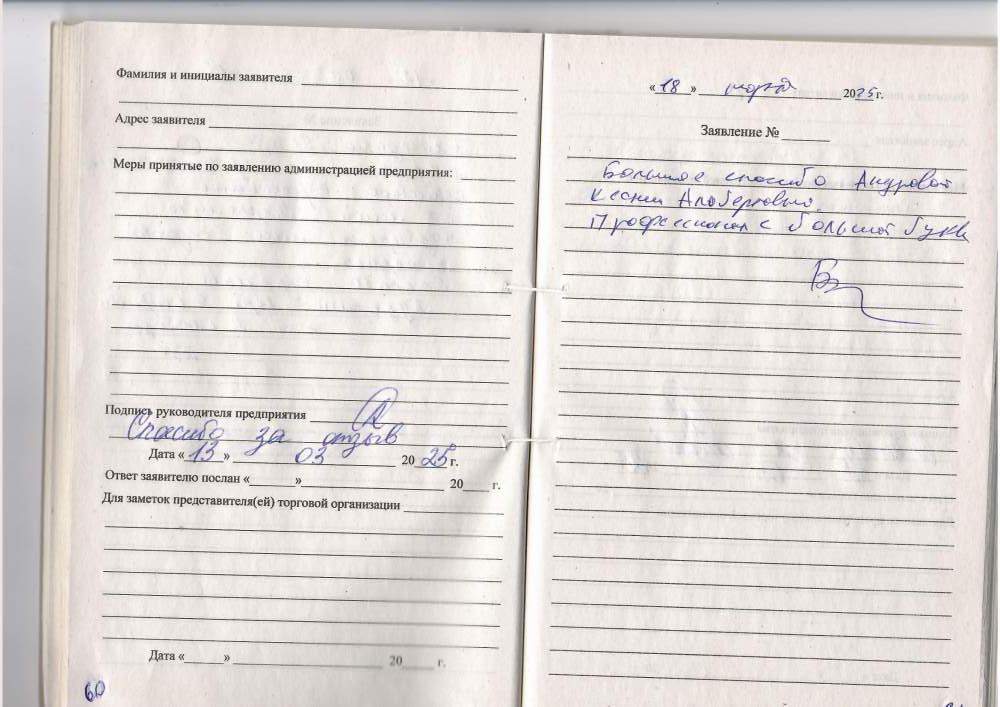 Фамилия и инициалы заявителя
Адрес заявителя
Меры принятые по заявлению администрацией предприятия:
Подпись руководителя предприятия
Спасибо за отзыв
Дата «13» 03 2025 г.
Ответ заявителю послан «» 20 г.
Для заметок представителя(ей) торговой организации
Дата «» 20 г.
60
«18» марта 2025 г.
Заявление №
Большое спасибо
Ксении Альбертовне
Профессионал с большой буквы